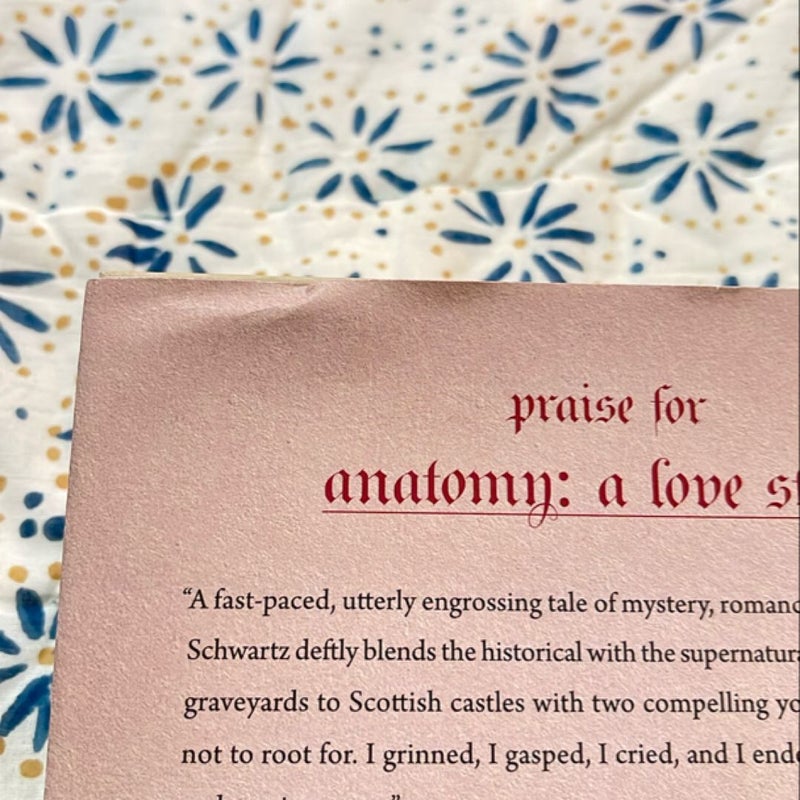 praise for
anatomy: a love
"A fast-paced, utterly engrossing tale of mystery,
Schwartz deftly blends the historical with the
graveyards to Scottish castles with two compelling
not to root for. I grinned, I gasped, I cried, and I